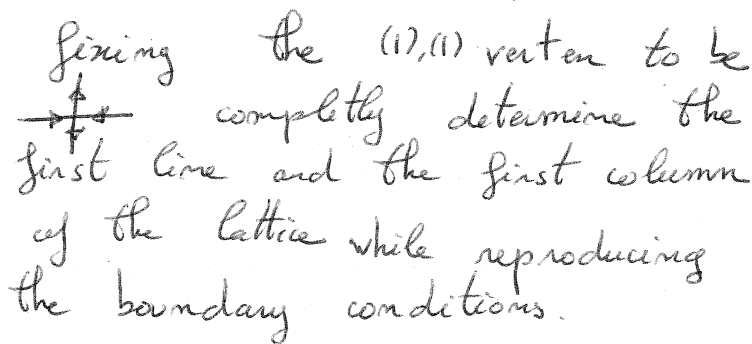 fixing the (1),(1) vertex to be
completly determine the
first line and the first column
of the lattice while reproducing
the boundary conditions.